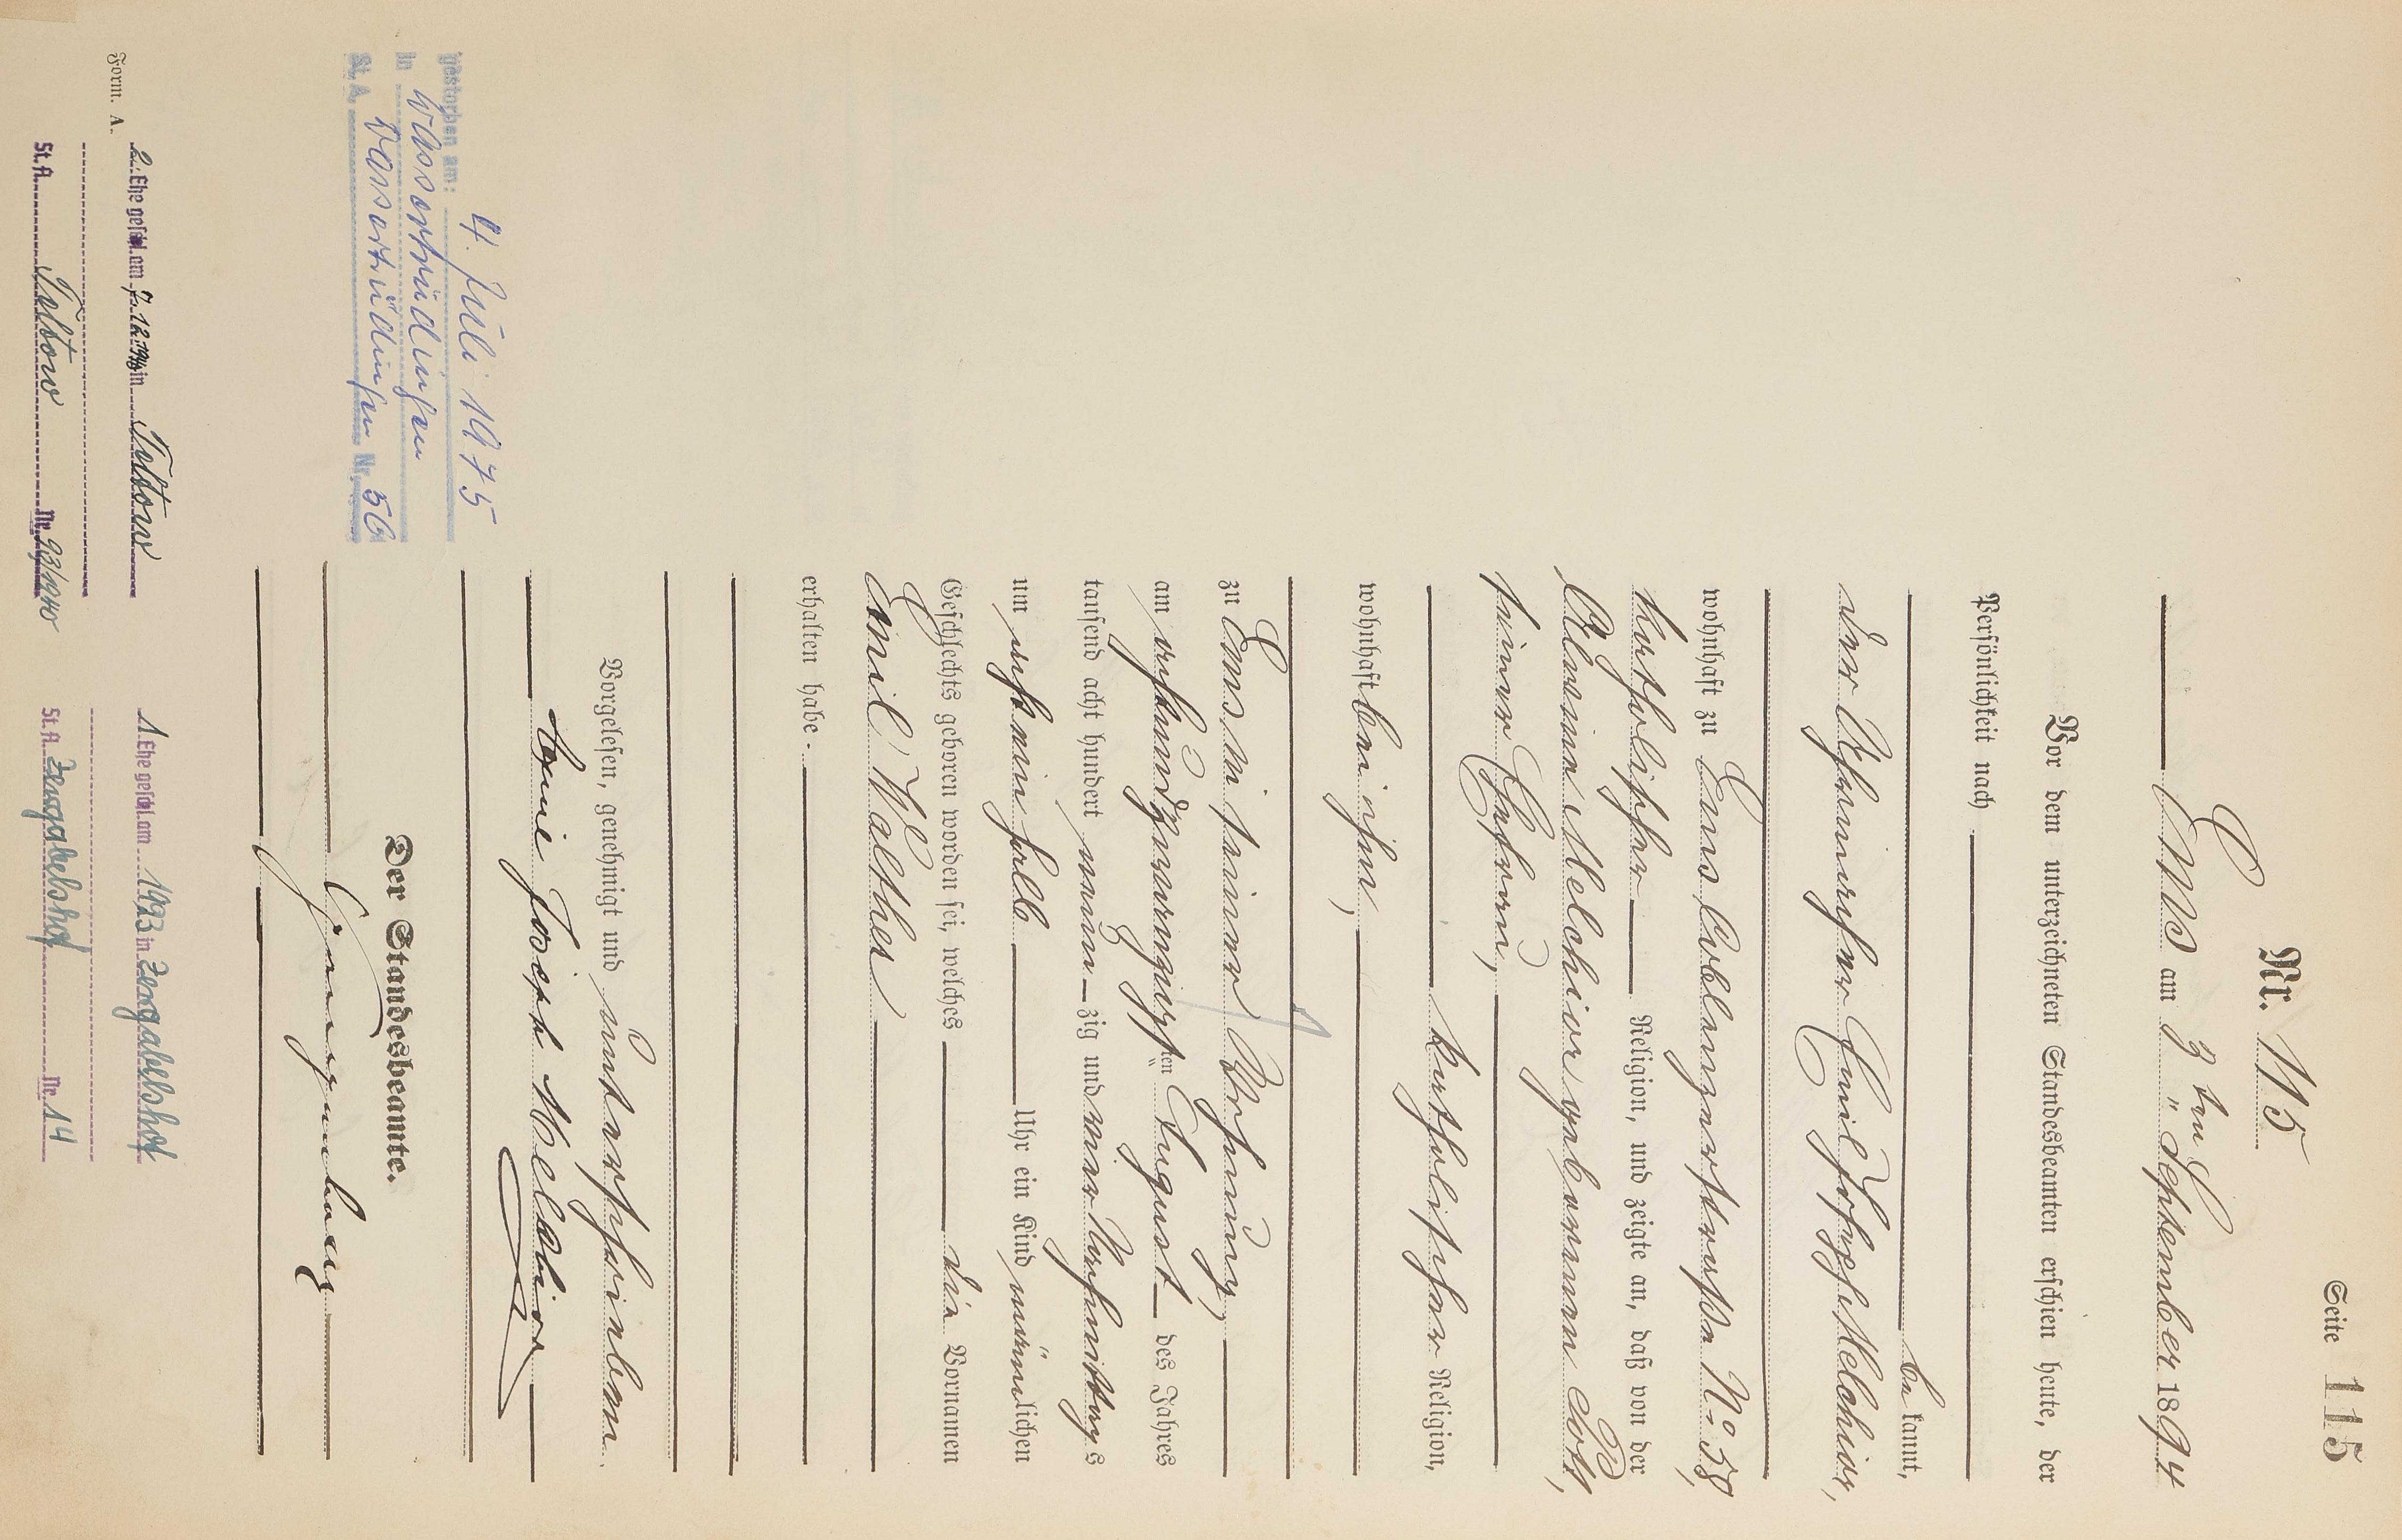 Seite 115
Nr. 115
Ems am 3ten September 1894
Vor dem unterzeichneten Standesbeamten erschien heute, der
Persönlichkeit nach
bekannt,
der Emil Joseph Melchior,
wohnhaft zu Ems, Coblenzerstraße No 58,
katholischer Religion, und zeigte an, daß von der
Alwine Melchior geborenen Sohl,
seiner Ehefrau,
katholischer Religion,
wohnhaft bei ihm,
zu Ems in seiner Wohnung,
am achtundzwanzigsten August des Jahres
tausend acht hundert neunzig und vier Nachmittags
um acht ein halb Uhr ein Kind männlichen
Geschlechts geboren worden sei, welches die Vornamen
Emil Walther
erhalten habe.
Vorgelesen, genehmigt und unterschrieben
Emil Joseph Melchior
Der Standesbeamte.
gestorben am: 4. Juli 1975
in Wassertrüdingen
St. A. Wassertrüdingen Nr. 56
Form. A.
2. Ehe geschl. am 7.12.1940 in Teltow
St. A. Teltow Nr. 93/1940
1. Ehe geschl. am 1923 in Zerggabelshof
St. A. Zerggabelshof Nr. 14